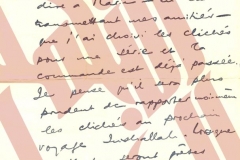 dire à
transmettant mes amitiés —
que j'ai choisi les clichés
pour une série et la
commande est déjà passée.
Je pense qu'il sera plus
prudent de rapporter
les clichés au prochain
voyage Inshallah. Lorsque
seront prêtes